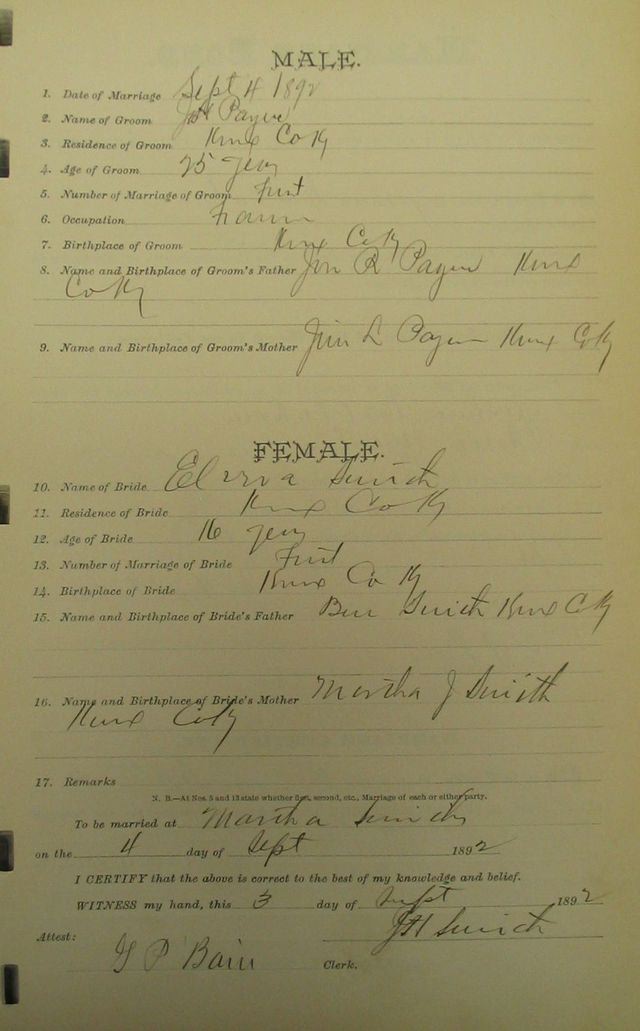 MALE.
1. Date of Marriage Sept 4 1892
2. Name of Groom J H Payne
3. Residence of Groom Knox Co Ky
4. Age of Groom 25 years
5. Number of Marriage of Groom First
6. Occupation Farmer
7. Birthplace of Groom Knox Co Ky
8. Name and Birthplace of Groom's Father R Payne Knox
Co Ky
9. Name and Birthplace of Groom's Mother L Payne Knox Co Ky
FEMALE.
10. Name of Bride Smith
11. Residence of Bride Knox Co Ky
12. Age of Bride 16 years
13. Number of Marriage of Bride First
14. Birthplace of Bride Knox Co Ky
15. Name and Birthplace of Bride's Father Ben Smith Knox Co Ky
16. Name and Birthplace of Bride's Mother Martha J Smith
Knox Co Ky
17. Remarks
N. B.—At Nos. 5 and 13 state whether first, second, etc., Marriage of each or either party.
To be married at Martha Smiths
on the 4 day of Sept 1892
I CERTIFY that the above is correct to the best of my knowledge and belief.
WITNESS my hand, this 3 day of Sept 1892
J H Smith
Attest:
G P Bain Clerk.